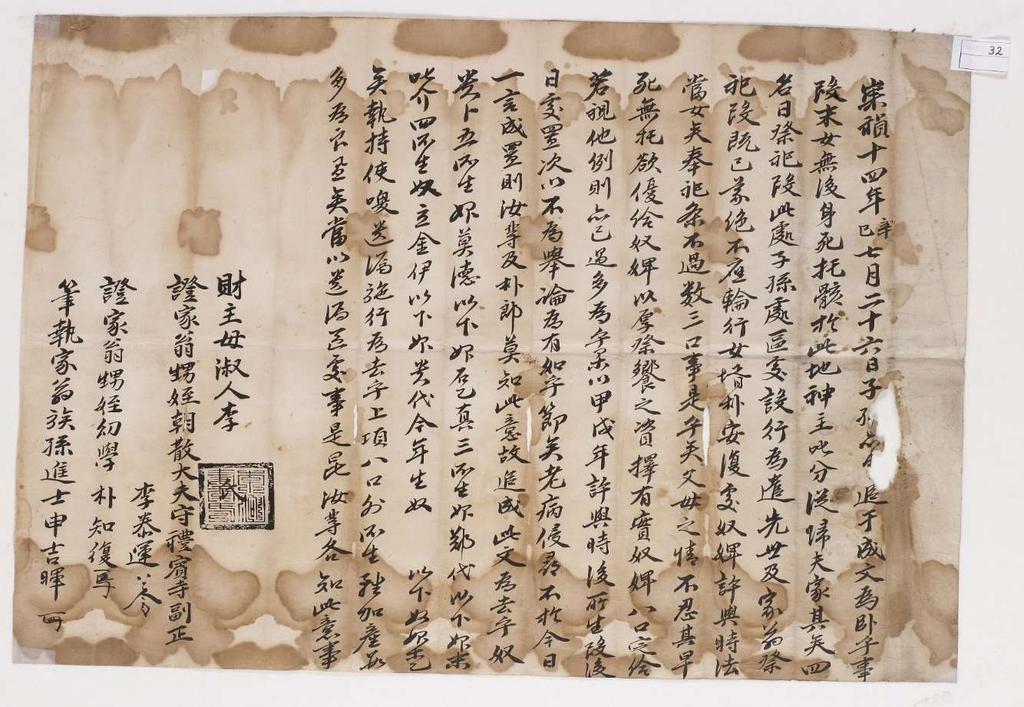 崇禎十四年辛巳七月二十六日子孫 追于成文為臥乎事
段末女無後身死托骸於此地神主此分從歸夫家其矣四
名日祭祀段此處子孫處區處設行為遣先世及家翁祭
祀段既已義絶不應輪行女壻朴安復處奴婢許與時法
當女矣奉祀条不過数三口事是乎矣父母之情不忍其早
死無托欲優給奴婢以厚祭饗之資擇有實奴婢八口定給
若視他例則亦已過多為乎累以甲戌年許與時後所生段後
日處置次以不為擧論為有如乎節矣老病侵尋不於今日
一言成置則汝輩及朴郎莫知此意故追成此文為去乎奴
婢卜五所生婢莫德以下婢石乙真三所生婢鄭代以下婢末
叱介四所生奴立金伊以下婢 代今年生奴 以下奴婢乙
矣執持使喚 施行為去乎上項八口外所生 加產
多為良置矣當以 區處事是昆汝等各知此意事
財主母淑人李
證家翁甥姪朝散大夫守禮賓寺副正
李泰運
證家翁甥姪幼學 朴知復
筆執家翁族孫進士申吉暉
32